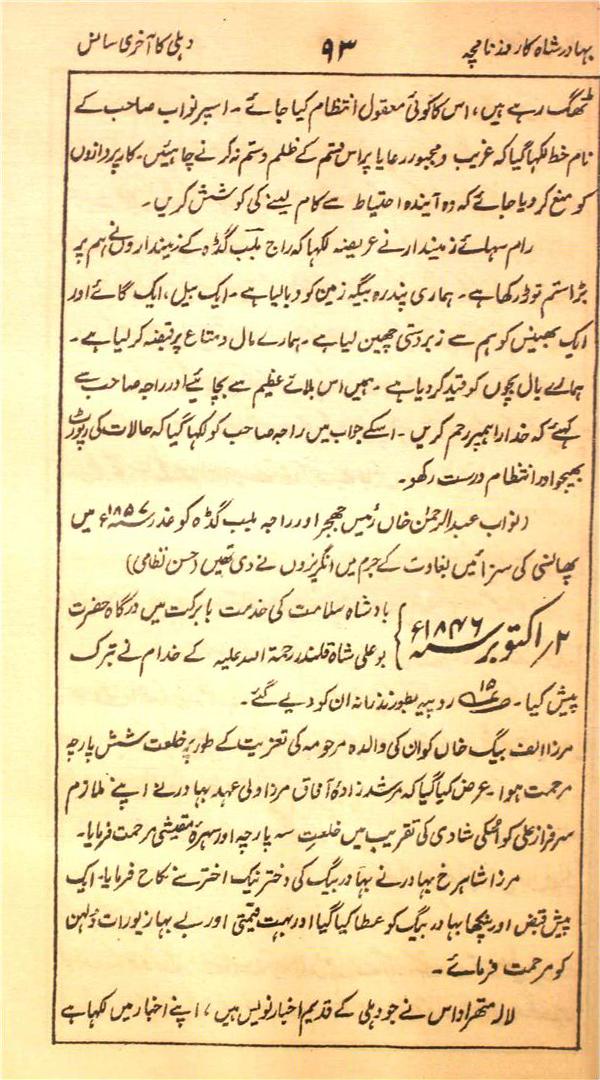 بہادر شاہ کا روزنامچہ ۹۳ دہلی کا آخری سانس
ٹھگ رہے ہیں، اس کا کوئی معقول انتظام کیا جائے۔ اسپر نواب صاحب کے
نام خط لکھا گیا کہ غریب و مجبور رعایا پر اس قسم کے ظلم و ستم نہ کرنے چاہئیں۔ کارپردازوں
کو منع کر دیا جائے کہ وہ آیندہ احتیاط سے کام لینے کی کوشش کریں۔
رام سہائے زمیندار نے عریضہ لکھا کہ راج بلب گڈہ کے زمینداروں نے ہم پر
بڑا ستم توڑ رکھا ہے۔ ہماری پندرہ بیگہ زمین کو دبا لیا ہے۔ ایک بیل، ایک گائے اور
ایک بھینس کو ہم سے زبردستی چھین لیا ہے۔ ہمارے مال و متاع پر قبضہ کر لیا ہے۔
ہمارے بال بچوں کو قید کر دیا ہے۔ ہمیں اس بلائے عظیم سے بچائیے اور راجہ صاحب سے
کہئے کہ خدارا ہمپر رحم کریں۔ اسکے جواب میں راجہ صاحب کو لکھا گیا کہ حالات کی رپورٹ
بھیجو اور انتظام درست رکھو۔
(نواب عبدالرحمٰن خاں رئیس جھجر اور راجہ بلب گڈہ کو غدر ۱۸۵۷ء میں
پھانسی کی سزائیں بغاوت کے جرم میں انگریزوں نے دی تھیں (حسن نظامی)
۲؍ اکتوبر ۱۸۴۶ء } بادشاہ سلامت کی خدمت بابرکت میں درگاہ حضرت
بو علی شاہ قلندر رحمۃ اللہ علیہ کے خدام نے تبرک
پیش کیا۔ ۱۵ روپیہ بطور نذرانہ ان کو دیے گئے۔
مرزا الف بیگ خاں کو ان کی والدہ مرحومہ کی تعزیت کے طور پر خلعت شش پارچہ
مرحمت ہوا۔ عرض کیا گیا کہ مرشد زادۂ آفاق مرزا ولی عہد بہادر نے اپنے ملازم
سرفراز علی کو اسکی شادی کی تقریب میں خلعت سہ پارچہ اور سہرۂ مقیشی مرحمت فرمایا۔
مرزا شاہرخ بہادر نے بہادر بیگ کی دختر نیک اختر سے نکاح فرمایا۔ ایک
پیش قبض اور پنکھا بہادر بیگ کو عطا کیا گیا اور بہت قیمتی اور بے بہا زیورات دلہن
کو مرحمت فرمائے۔
لالہ متھراداس نے جو دہلی کے قدیم اخبار نویس ہیں، اپنے اخبار میں لکھا ہے